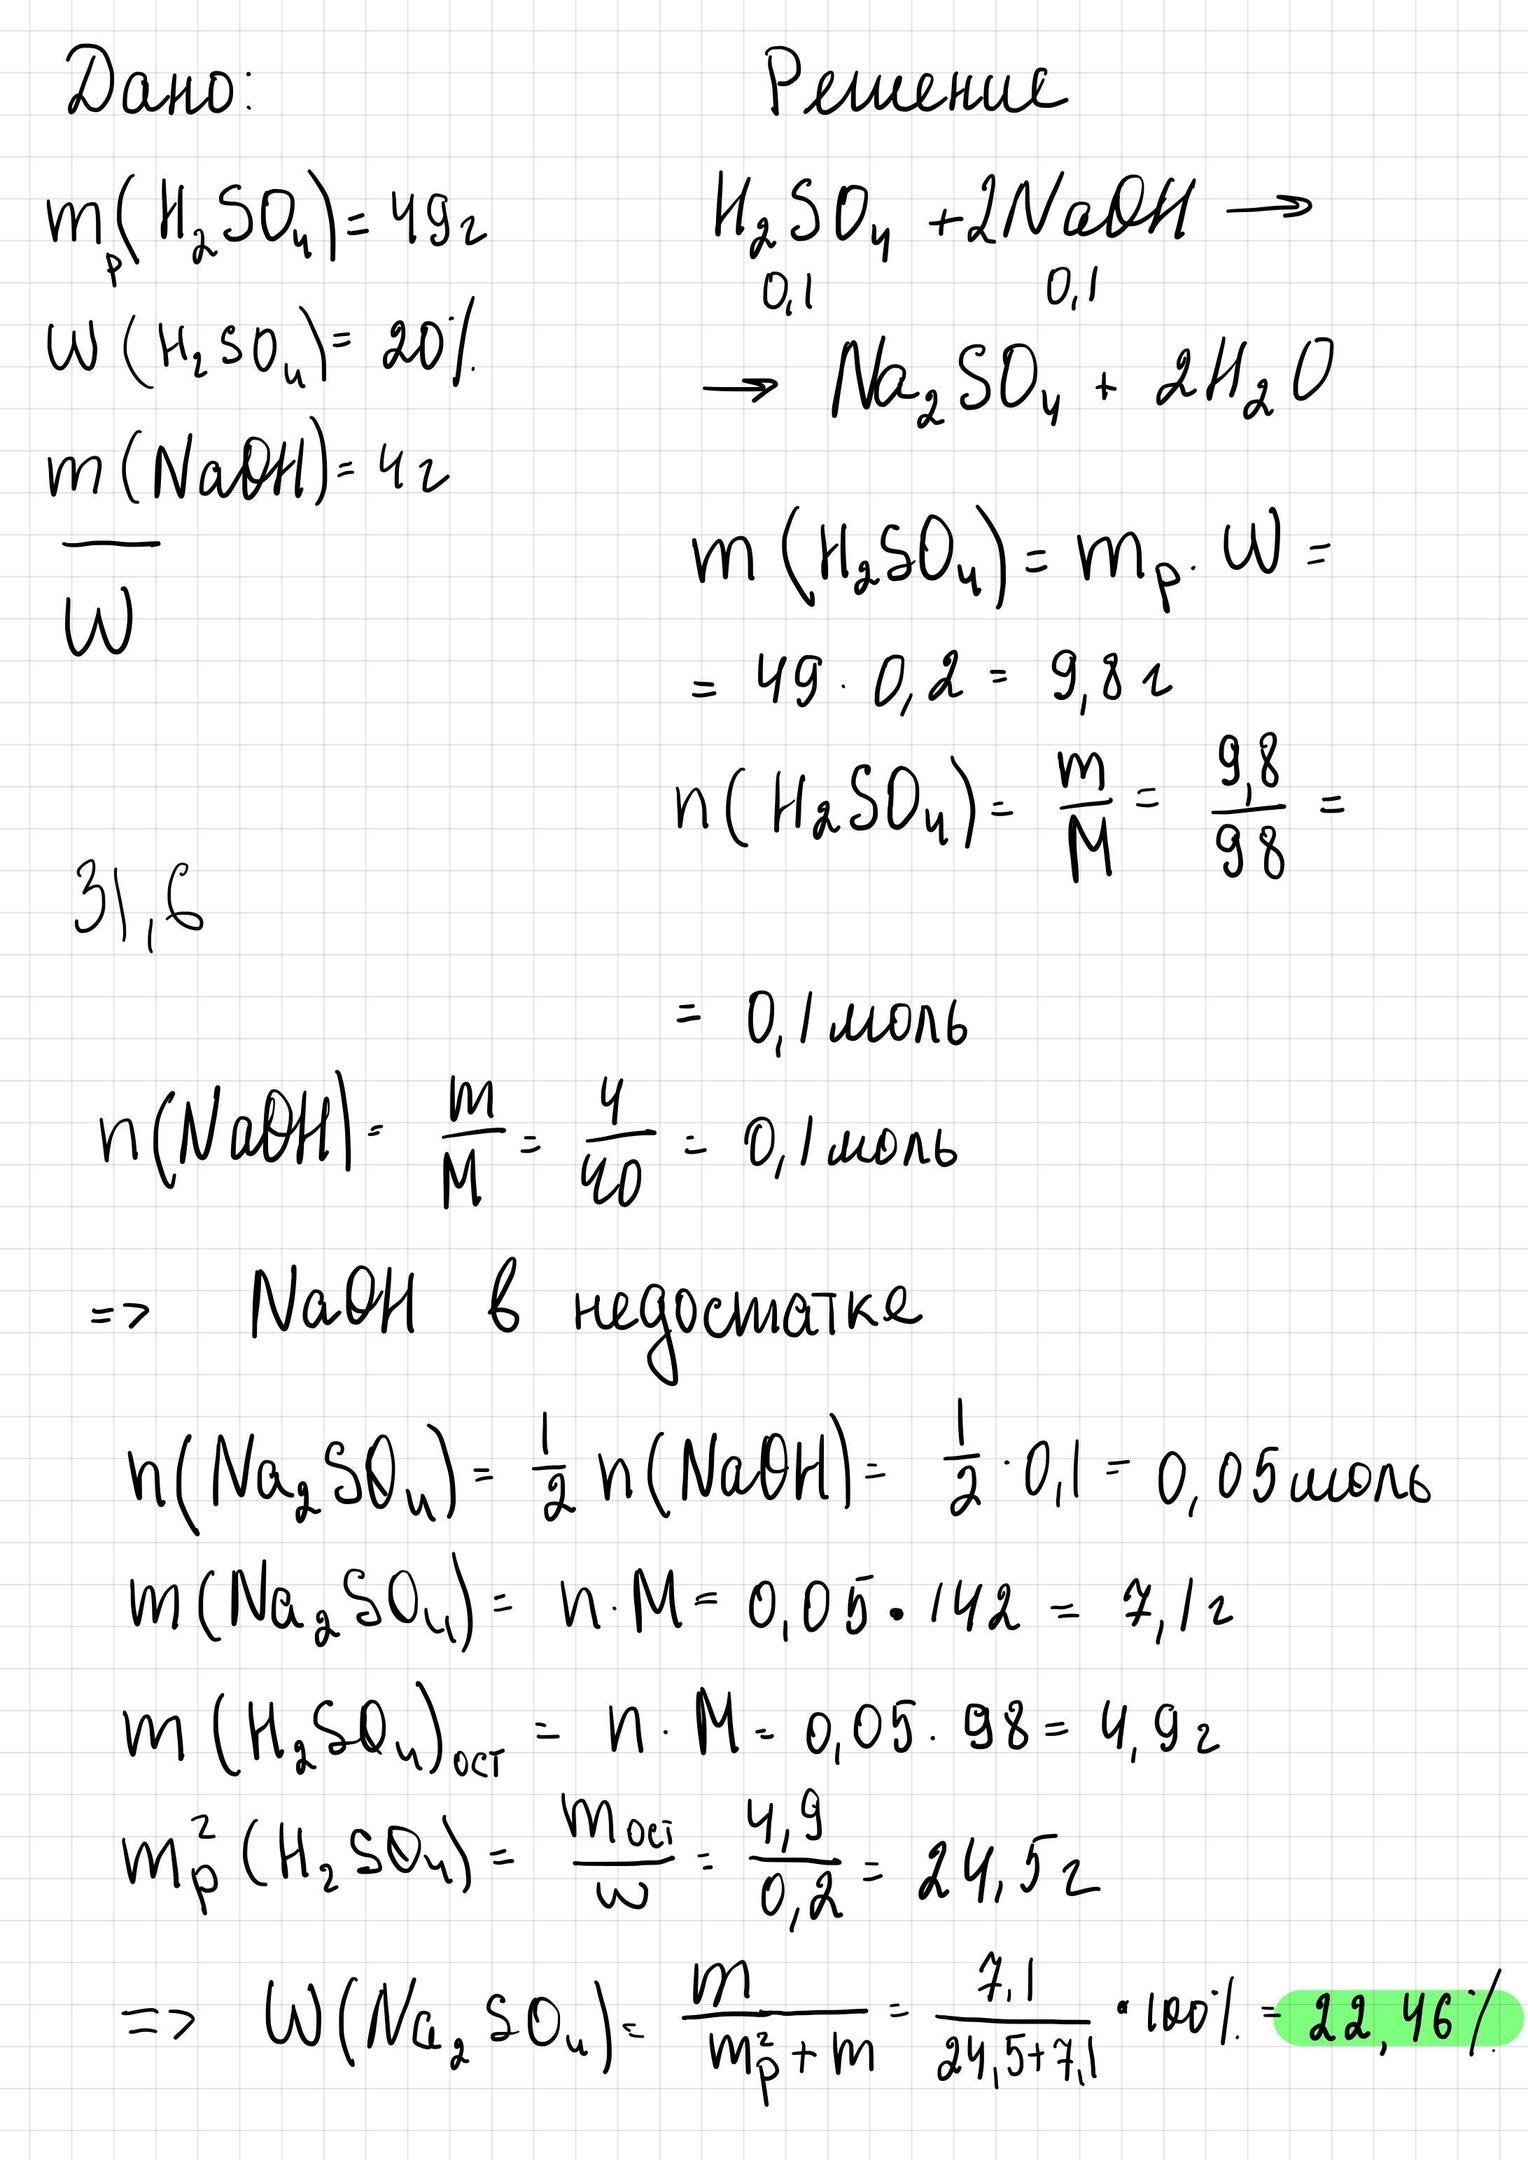 Дано:
Решение
mₚ(H₂SO₄) = 49г
W(H₂SO₄) = 20%
m(NaOH) = 4г
W
31,6
H₂SO₄ + 2NaOH →
0,1 0,1
→ Na₂SO₄ + 2H₂O
m(H₂SO₄) = mₚ · W =
= 49 · 0,2 = 9,8 г
n(H₂SO₄) = m/M = 9,8/98 =
= 0,1 моль
n(NaOH) = m/M = 4/40 = 0,1 моль
=> NaOH в недостатке
n(Na₂SO₄) = 1/2 n(NaOH) = 1/2 · 0,1 = 0,05 моль
m(Na₂SO₄) = n · M = 0,05 · 142 = 7,1 г
m(H₂SO₄)ост = n · M = 0,05 · 98 = 4,9 г
mₚ²(H₂SO₄) = mост/w = 4,9/0,2 = 24,5 г
=> W(Na₂SO₄) = m/(mₚ² + m) = 7,1/(24,5+7,1) · 100% = 22,46%